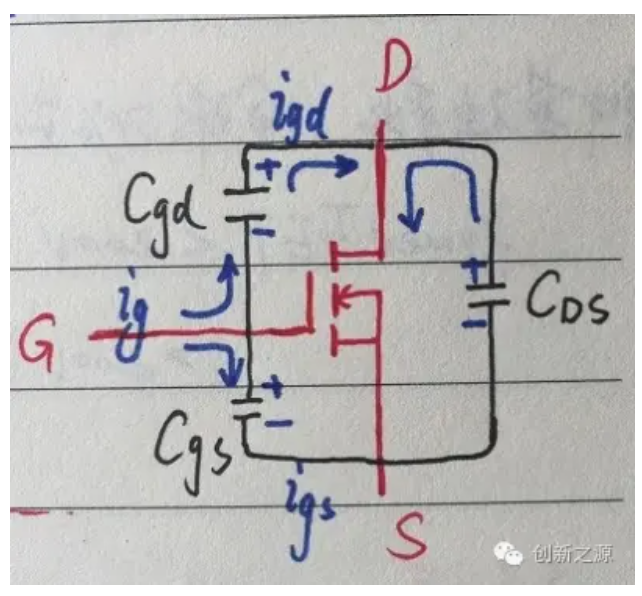 D
igd
+
Cgd
-
ig
G
+
CDS
-
+
Cgs
-
igs
S
创新之源